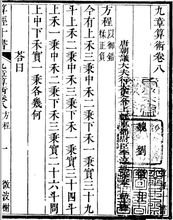 九章算術卷八
魏 劉
唐朝議大夫行太史令上
方程 以御錯糅正負
今有上禾三秉中禾二秉下禾一秉實三十九
斗上禾二秉中禾三秉下禾一秉實三十四斗
上禾一秉中禾二秉下禾三秉實二十六斗問
上中下禾實一秉各幾何
答曰
算經十書 九章算術卷八 方程 一 微波榭